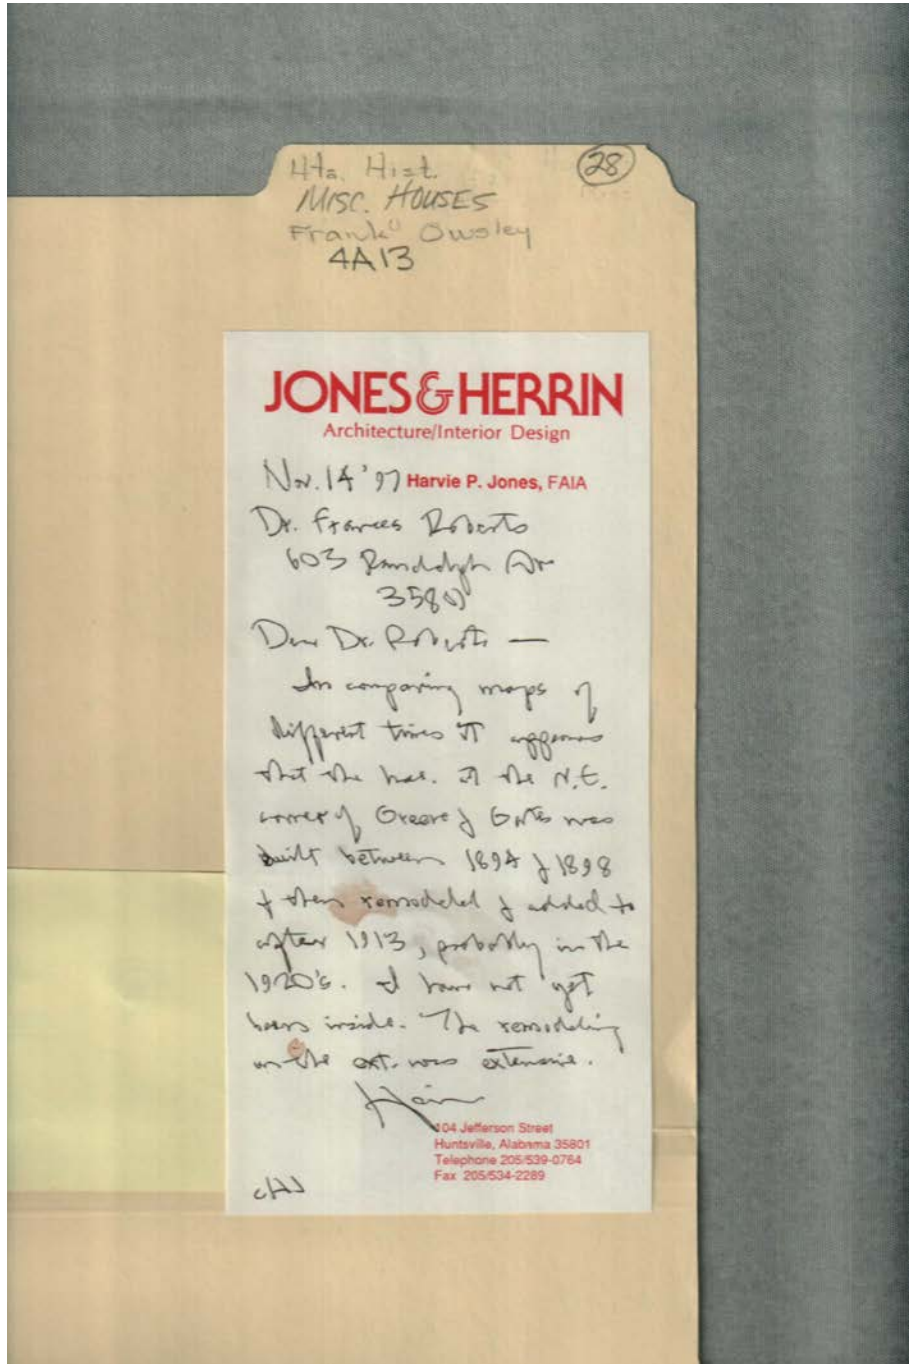 Hts. Hist.
28
MISC. HOUSES
Frank Owsley
4A13
JONES & HERRIN
Architecture/Interior Design
Nov. 14 '97 Harvie P. Jones, FAIA
Dr. Frances Roberts
603 Randolph Av
35801
Dear Dr. Roberts —
In comparing maps of
different times it appears
that the hse. at the N.E.
corner of Greene & Gates was
built between 1894 & 1898
& then remodeled & added to
after 1913, probably in the
1920's. I have not yet
been inside. The remodeling
on the ext. was extensive.
Harvie
104 Jefferson Street
Huntsville, Alabama 35801
Telephone 205/539-0764
Fax 205/534-2289